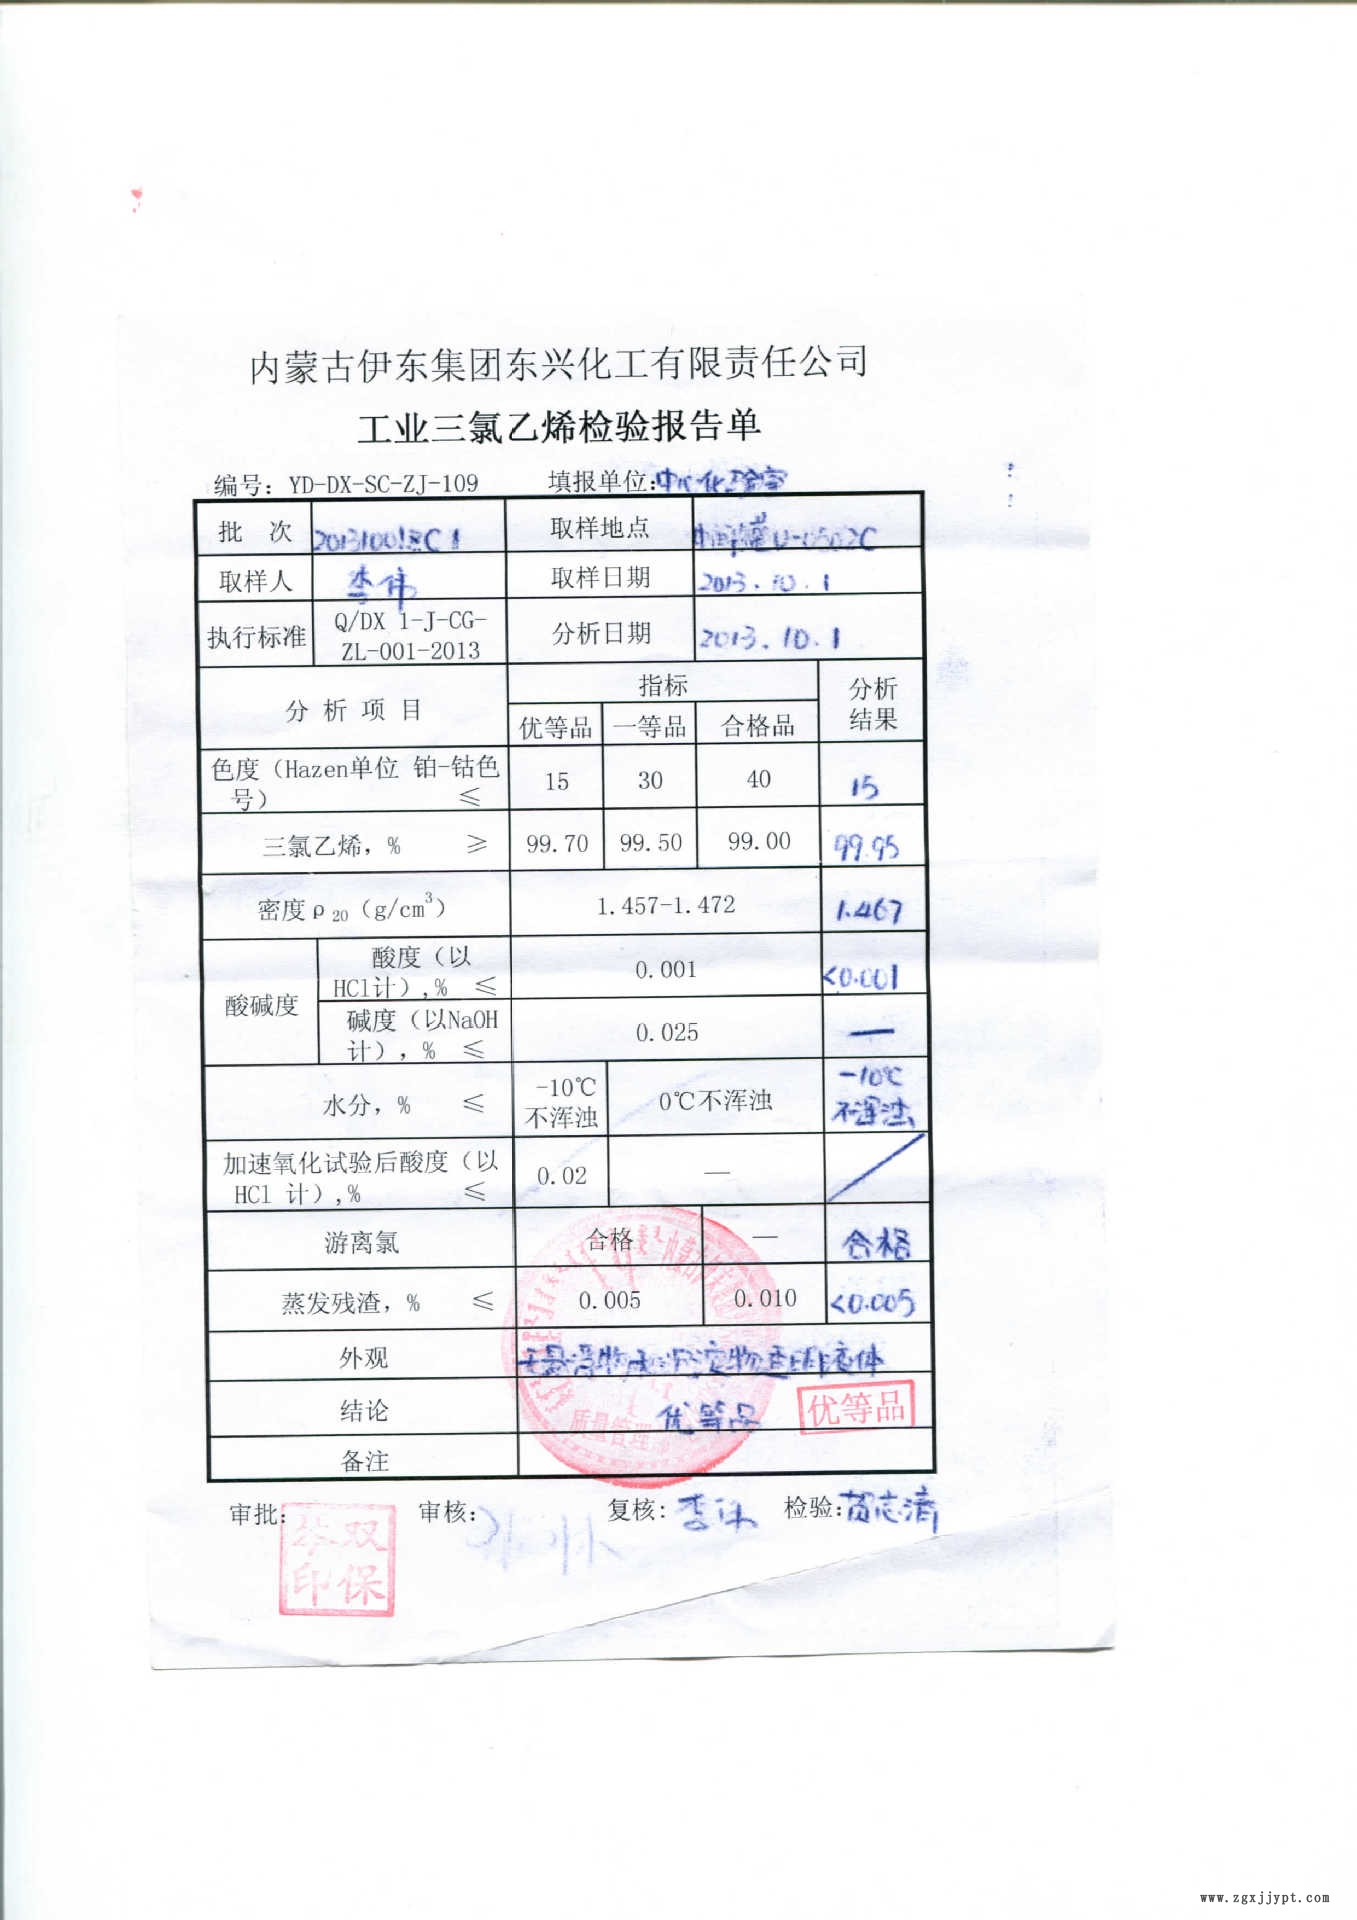 内蒙古伊东集团东兴化工有限责任公司
工业三氯乙烯检验报告单
编号：YD-DX-SC-ZJ-109 填报单位：中心化验室
批 次 取样地点
取样人 李伟 取样日期 2013.10.1
执行标准 Q/DX 1-J-CG-
ZL-001-2013 分析日期 2013.10.1
分 析 项 目 指标 分析
结果
优等品 一等品 合格品
色度（Hazen单位 铂-钴色
号） ≤ 15 30 40 15
三氯乙烯，% ≥ 99.70 99.50 99.00 99.95
密度ρ20（g/cm3） 1.457-1.472 1.467
酸碱度 酸度（以
HCl计）,% ≤ 0.001 <0.001
碱度（以NaOH
计），% ≤ 0.025 —
水分，% ≤ -10℃
不浑浊 0℃不浑浊 -10℃
不浑浊
加速氧化试验后酸度（以
HCl 计）,% ≤ 0.02 —
游离氯 合格 — 合格
蒸发残渣，% ≤ 0.005 0.010 <0.005
外观
结论 优等品 优等品
备注
质量管理
审批： 审核： 复核：李伟 检验：苗志清
双
印保
www.zgxjjypt.com